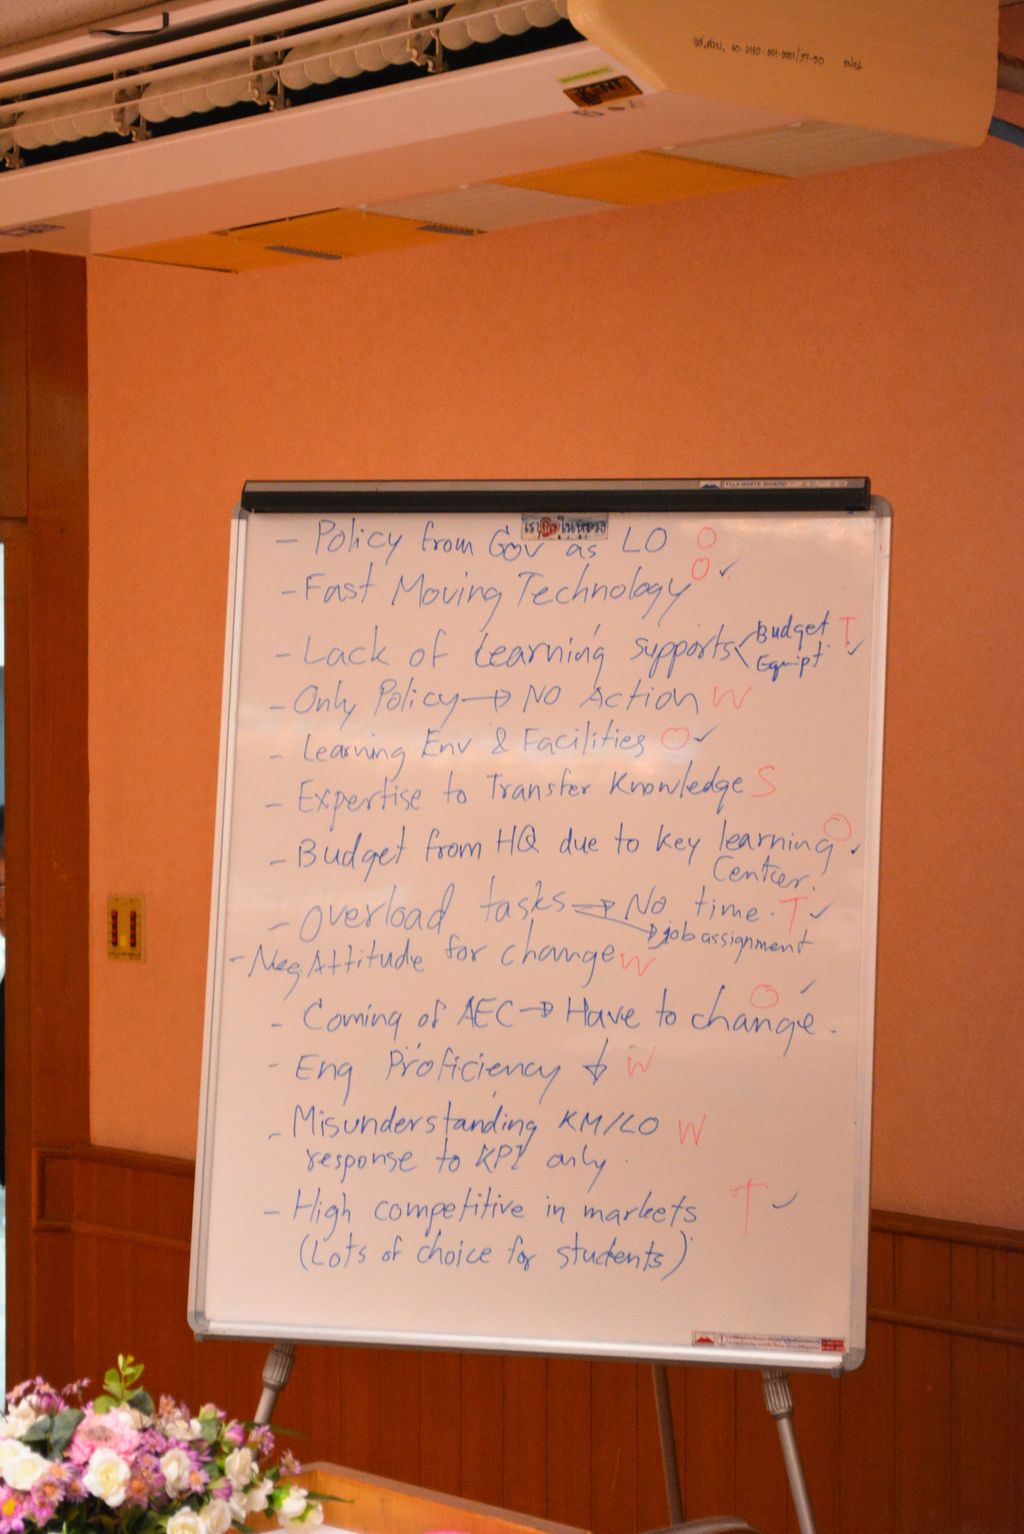 FUJI WHITE BOARD
- Policy from Gov as LO O
- Fast Moving Technology O ✓
- Lack of learning supports Budget T
Equipt. ✓
- Only Policy → NO Action W
- Learning Env & Facilities O ✓
- Expertise to Transfer Knowledge S
- Budget from HQ due to key learning O ✓
Center.
- overload tasks → No time. T ✓
→ job assignment
- Neg. Attitude for change W
- Coming of AEC → Have to change. O ✓
- Eng Proficiency ↓ W
- Misunderstanding KM/LO W
response to KPI only.
- High competitive in markets T ✓
(Lots of choice for students)